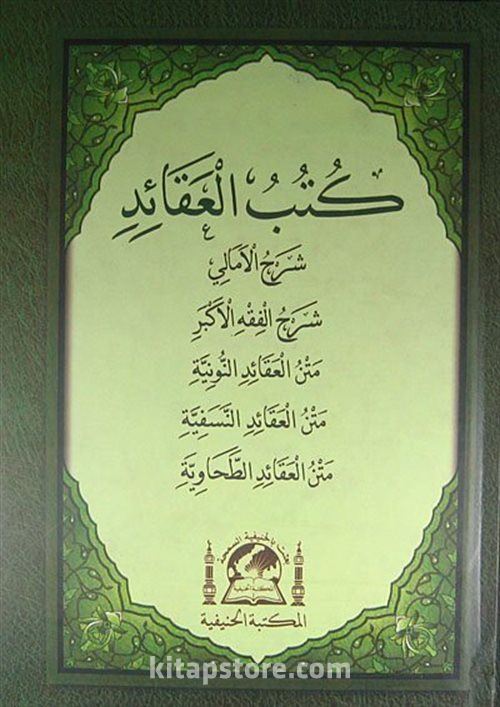 كُتُبُ الْعَقَائِدِ
شَرْحُ الْأَمَالِي
شَرْحُ الْفِقْهِ الْأَكْبَرِ
مَتْنُ الْعَقَائِدِ النُّونِيَّةِ
مَتْنُ الْعَقَائِدِ النَّسَفِيَّةِ
مَتْنُ الْعَقَائِدِ الطَّحَاوِيَّةِ
المكتبة الحنيفية
المكتبة الحنيفية
kitapstore.com